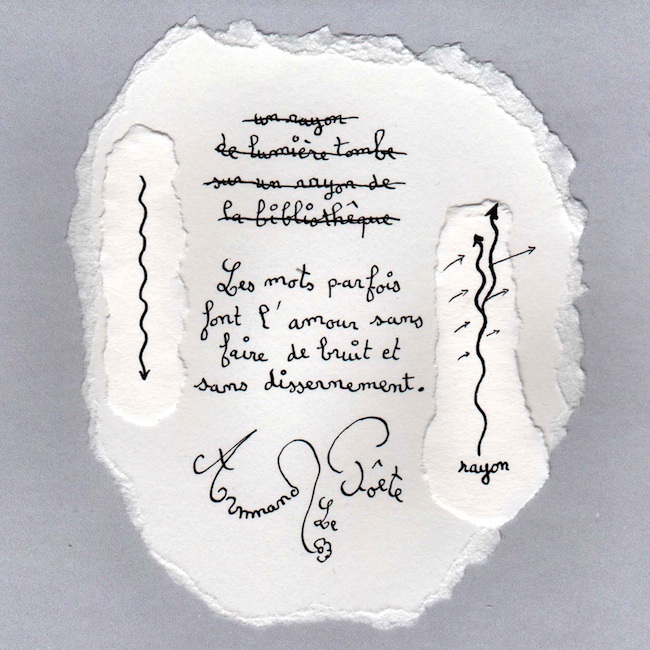 un rayon
de lumière tombe
sur un rayon de
la bibliothêque
Les mots parfois
font l'amour sans
faire de bruit et
sans dissernement.
Armand
Le
Poête
rayon